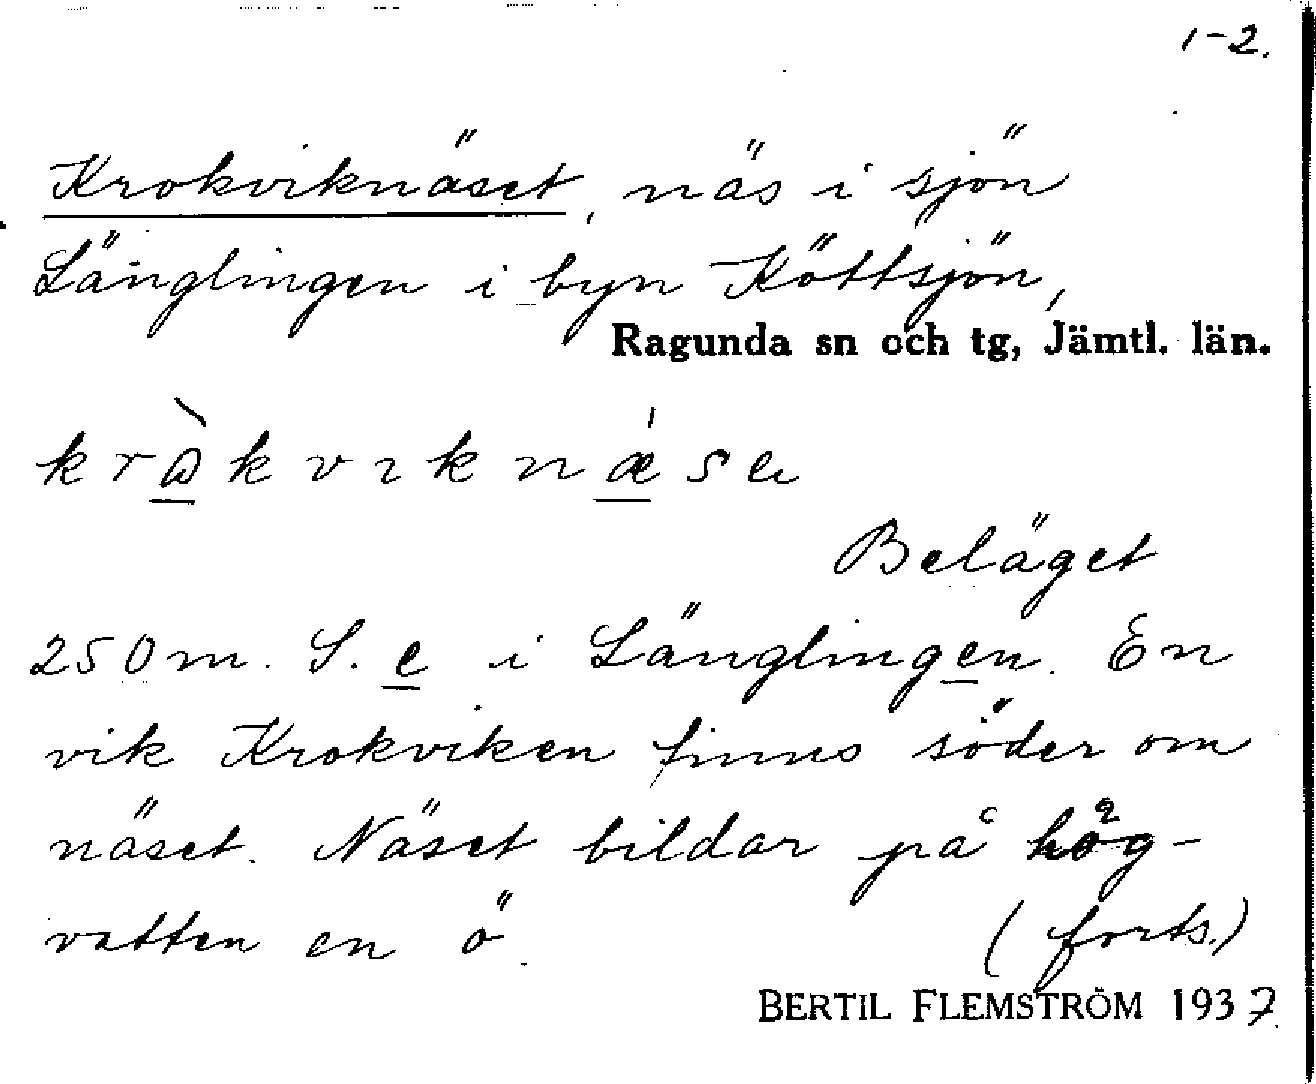 1-2.
Krokviknäset, näs i sjön
Länglingen i byn Köttsjön,
Ragunda sn och tg, Jämtl. län.
Beläget
250 m. S. e i Länglingen. En
vik Krokviken finns söder om
näset. Näset bildar på hög-
vatten en ö
(forts.)
BERTIL FLEMSTRÖM 1937